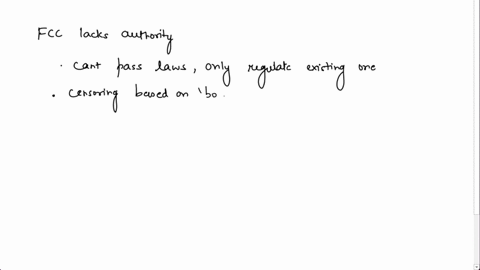 FCC lacks authority
· cant pass laws, only regulate existing one
· censoring based on 'bo.